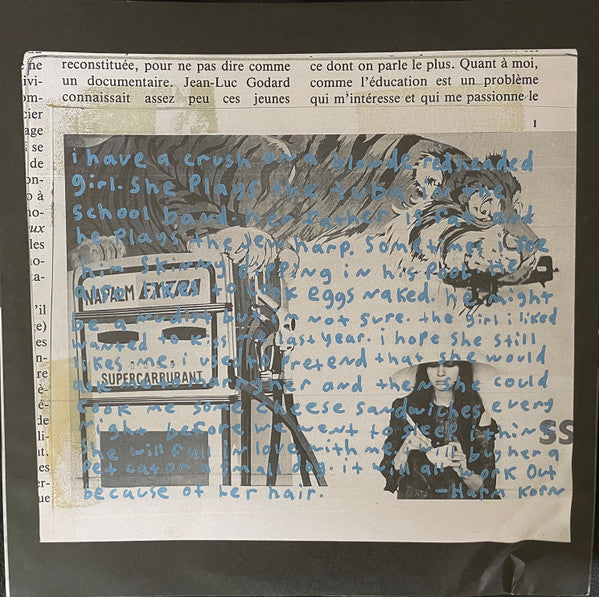 reconstituée, pour ne pas dire comme
un documentaire. Jean-Luc Godard
connaissait assez peu ces jeunes
ce dont on parle le plus. Quant à moi,
comme l'éducation est un problème
qui m'intéresse et qui me passionne le
1
ne
ivi-
om-
cier
age
se
de
on-
o à
no-
eux
les
no-
ta-
'il
re)
es
en-
re
é-
de
li-
nt.
es
er-
ue
i have a crush on a blonde redheaded
girl. She plays the tuba in the
school band. her father is fat and
he plays the jew harp. Sometimes i see
him skinny dipping in his pool. he
also likes to cook eggs naked. he might
be a nudist but i'm not sure. the girl i liked
wanted to kiss me last year. i hope she still
likes me. i used to pretend that she would
ask me to marry her and then she could
cook me some cheese sandwiches every
night before we went to sleep. i think
she will fall in love with me. i will buy her a
pet cat or a small dog. it will all work out
because of her hair. -Harm Korn
NAPALM EXTRA
SUPERCARBURANT
SS